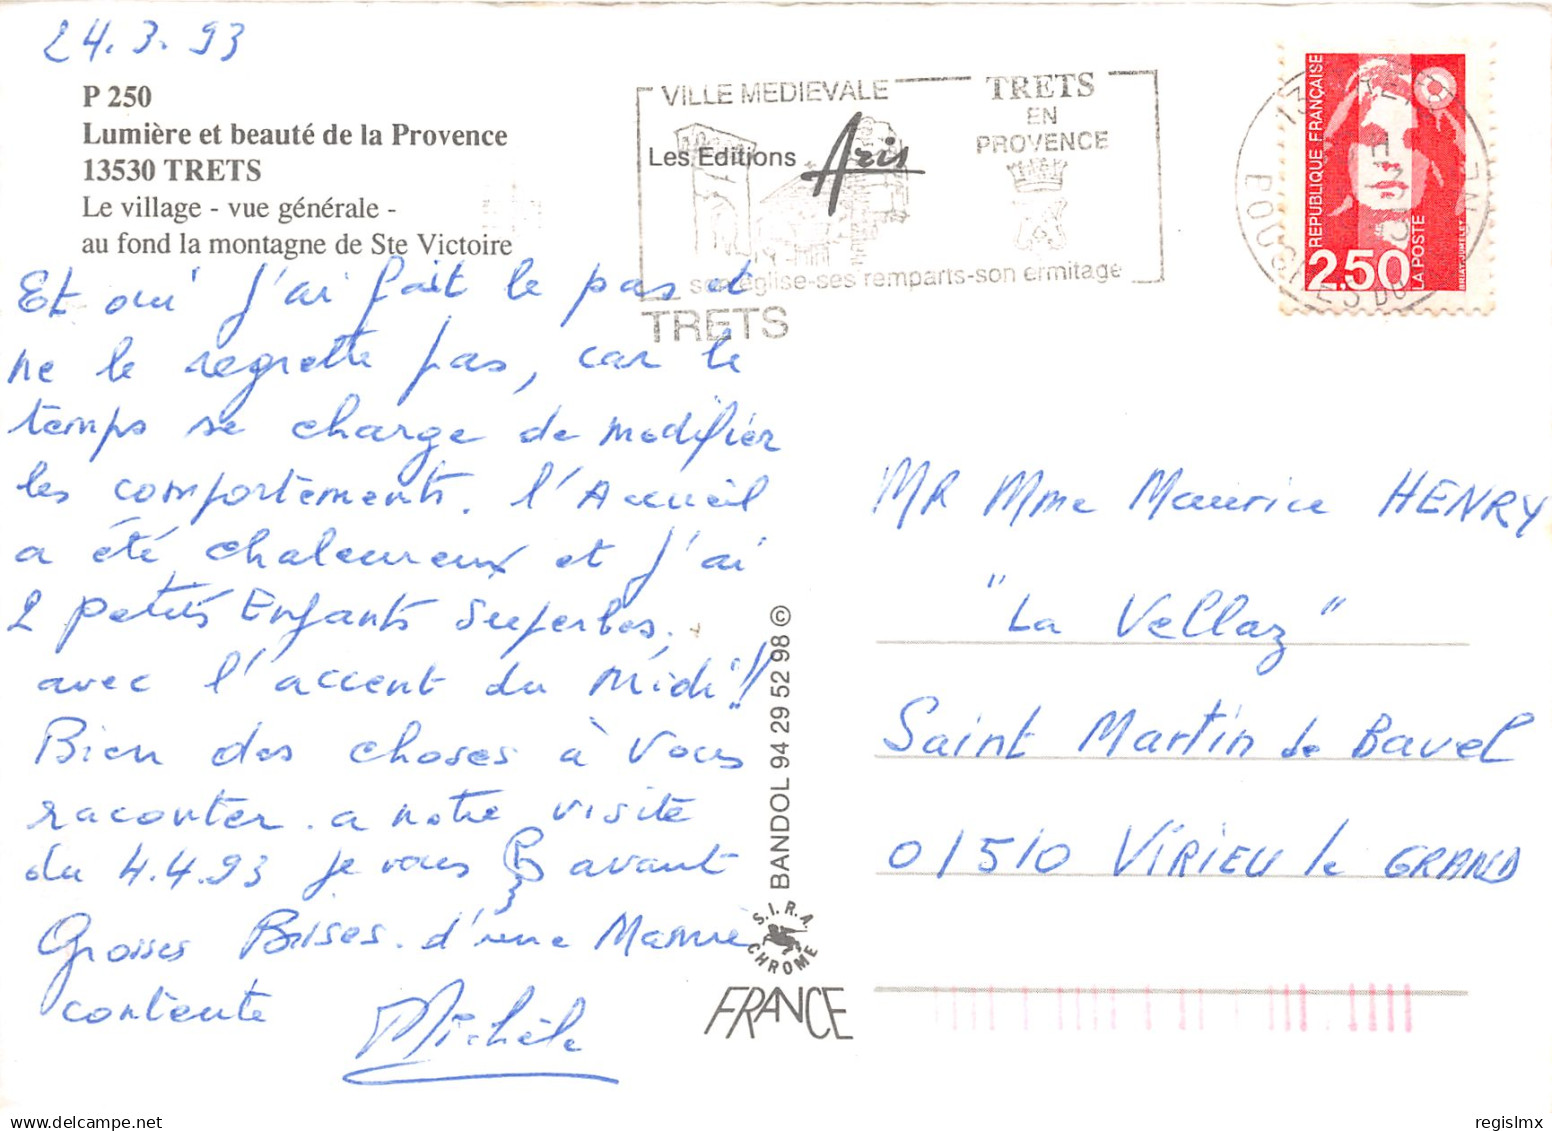 24.3.93
P 250
Lumière et beauté de la Provence
13530 TRETS
Le village - vue générale -
au fond la montagne de Ste Victoire
VILLE MEDIEVALE
TRETS
EN
PROVENCE
Les Editions Aris
son église-ses remparts-son ermitage
TRETS
REPUBLIQUE FRANÇAISE
2.50
LA POSTE
BRIAT.JUMELET
13
BOUCHES DU
NE
Et oui j'ai fait le pas et
ne le regrette pas, car le
temps se charge de modifier
les comportements. l'Accueil
a été chaleureux et j'ai
2 petits Enfants Superbes.
avec l'accent du Midi!!
Bien des choses à vous
raconter. a notre visite
du 4.4.93 je vous avant
Grosses Bises. d'une Mamie
contente Michèle
MR Mme Maurice HENRY
"La Vellaz"
Saint Martin de Bavel
01510 VIRIEU le GRAND
BANDOL 94 29 52 98 ©
S.I.R.A.
CHROME
FRANCE
delcampe.net
regislmx